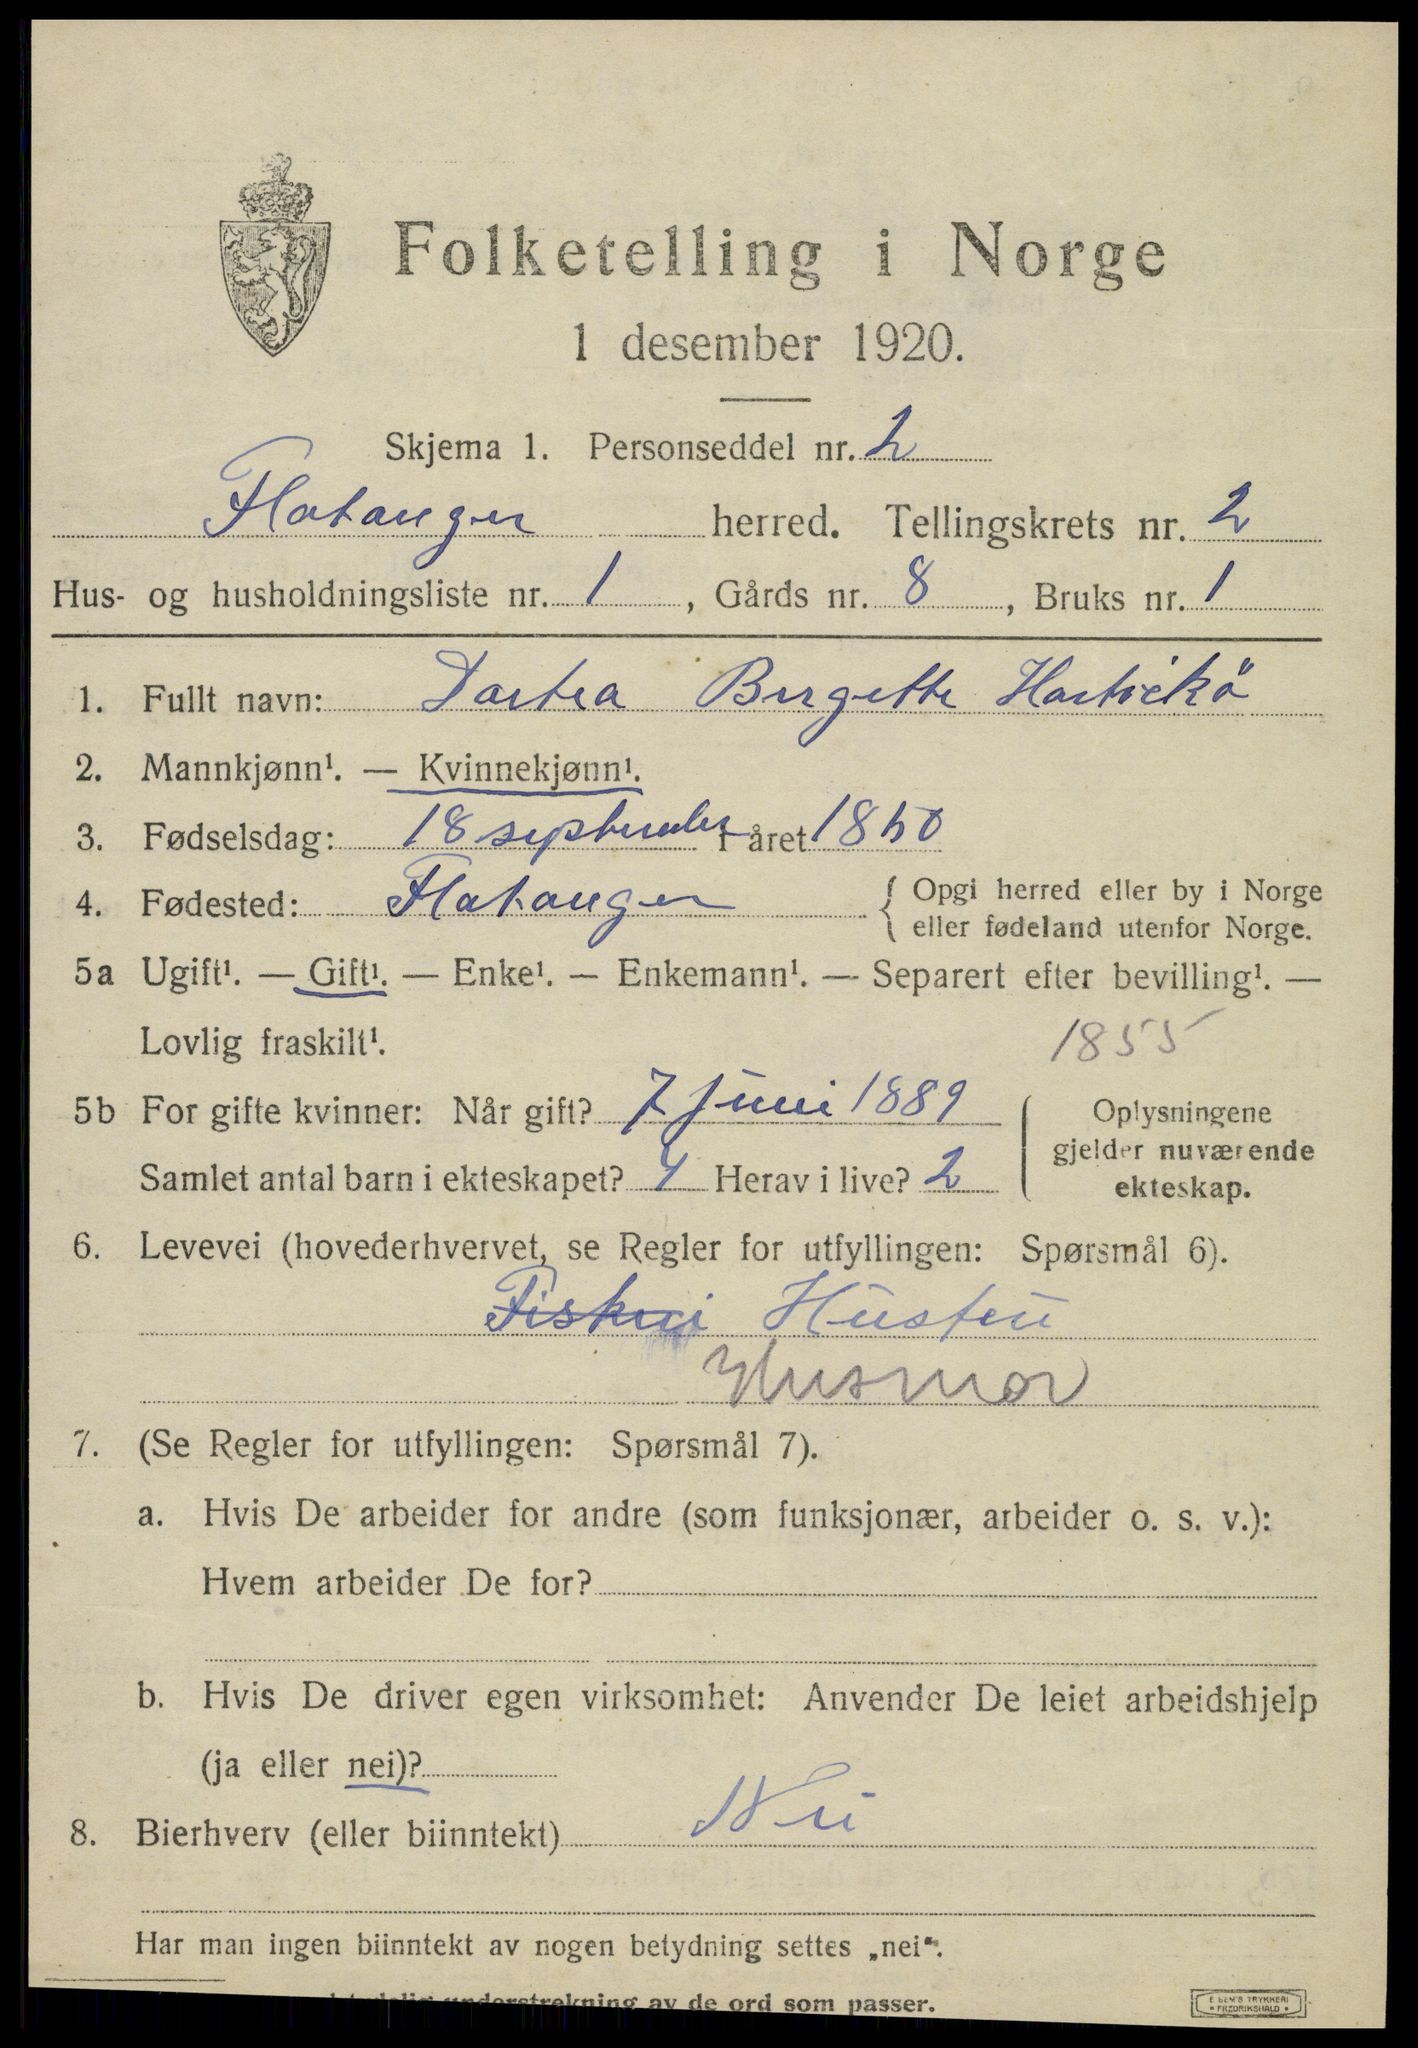 Folketelling i Norge
1 desember 1920.
Skjema 1. Personseddel nr. 2
Flatanger herred. Tellingskrets nr. 2
Hus- og husholdningsliste nr. 1, Gårds nr. 8, Bruks nr. 1
1. Fullt navn: Dortea Bergette Hartvikö
2. Mannkjønn¹. — Kvinnekjønn¹.
3. Fødselsdag: 18 september i året 1850
4. Fødested: Flatanger { Opgi herred eller by i Norge
eller fødeland utenfor Norge.
5a Ugift¹. — Gift¹. — Enke¹. — Enkemann¹. — Separert efter bevilling¹. —
Lovlig fraskilt¹. 1855
5b For gifte kvinner: Når gift? 7 Juni 1889
Samlet antal barn i ekteskapet? 4 Herav i live? 2
Oplysningene
gjelder nuværende
ekteskap.
6. Levevei (hovederhvervet, se Regler for utfyllingen: Spørsmål 6).
Fiskeri
Husmor
7. (Se Regler for utfyllingen: Spørsmål 7).
a. Hvis De arbeider for andre (som funksjonær, arbeider o. s. v.):
Hvem arbeider De for?
b. Hvis De driver egen virksomhet: Anvender De leiet arbeidshjelp
(ja eller nei)?
8. Bierhverv (eller biinntekt) Nei
Har man ingen biinntekt av nogen betydning settes „nei“.
understrekning av de ord som passer.
E. SEM'S TRYKKERI
• FREDRIKSHALD •